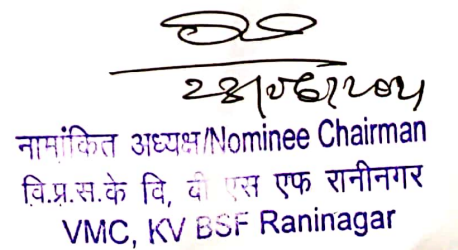 नामांकित अध्यक्ष/Nominee Chairman
वि.प्र.स.के वि, बी एस एफ रानीनगर
VMC, KV BSF Raninagar